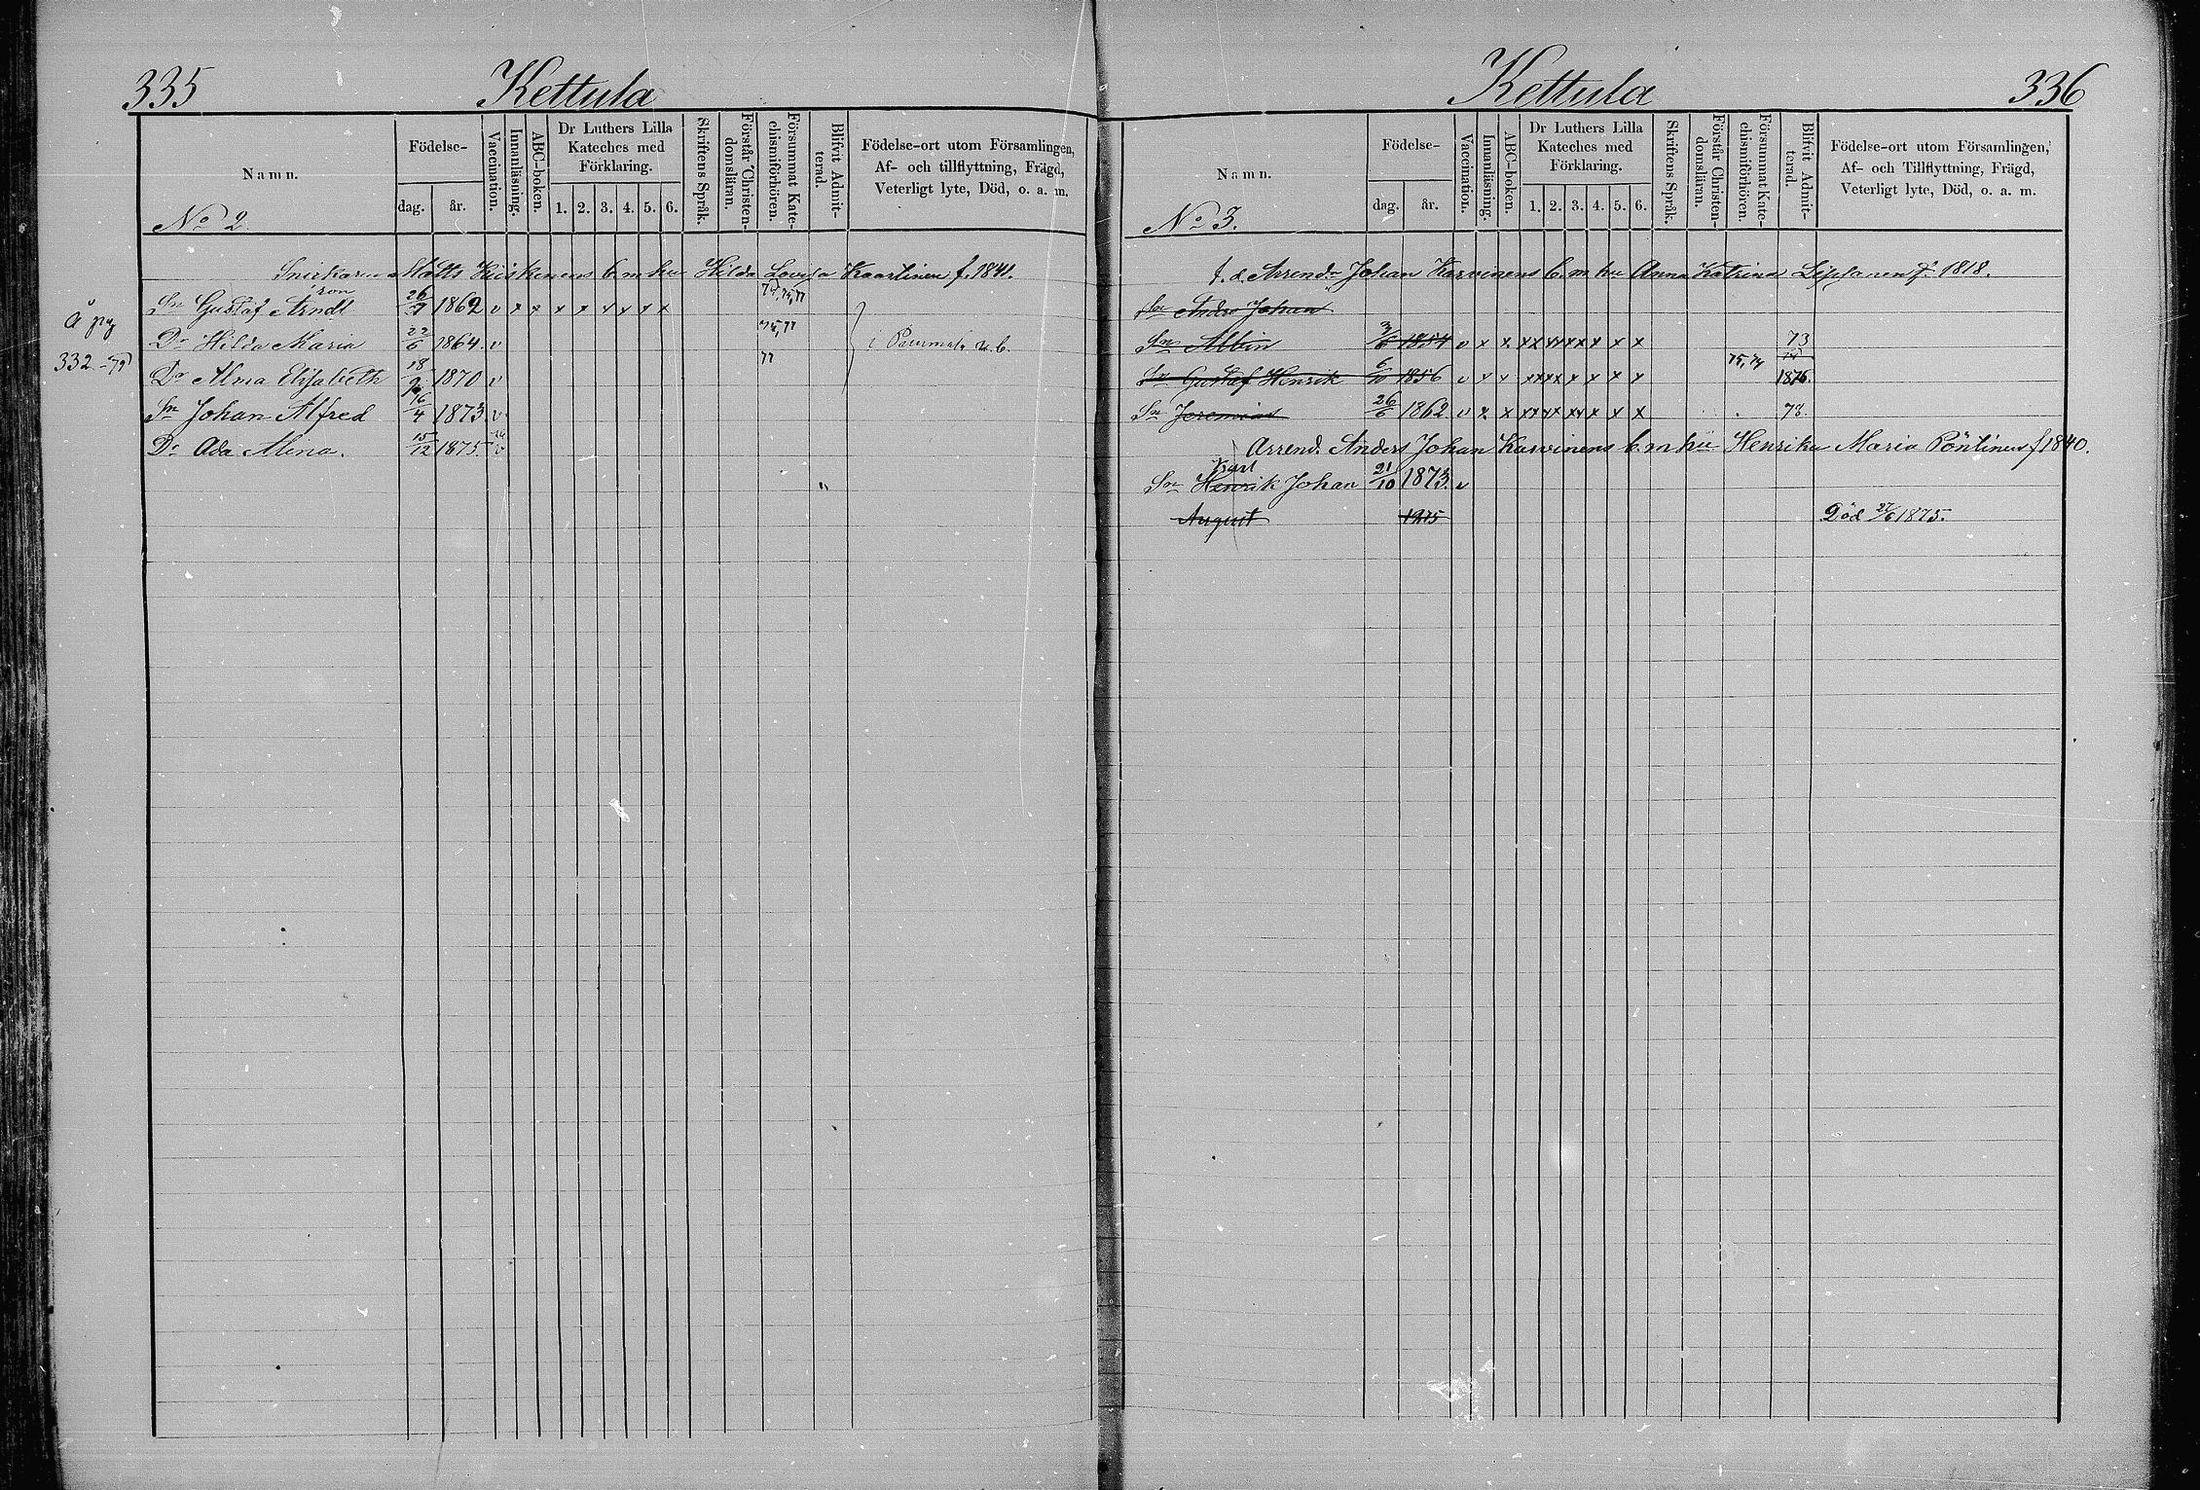 335 Kettula
Namn.
Födelse-
dag. år.
Vaccination.
Innanläsning.
ABC-boken.
Dr Luthers Lilla
Kateches med
Förklaring.
1. 2. 3. 4. 5. 6.
Skriftens Språk.
Förstår Christen-
domsläran.
Försummat Kate-
chismiförhören.
Blifvit Admit-
terad.
Födelse-ort utom Församlingen,
Af- och tillflyttning, Frägd,
Veterligt lyte, Död, o. a. m.
No 2.
Matts b. m. hu Hilda Lovisa Kaartinen f. 1841.
Sn Gustaf Arndt 26/9 1862 v x x x x x x x x
å pag
Dr Hilda Maria 22/6 1864. v 75, 77
332 -79
Dr Alma Elisabeth 1870 v 77
Sn Johan Alfred 16/4 1873. v
Dr Ada Mina. 15/12 1875. v
Kettula 336
Namn.
Födelse-
dag. år.
Vaccination.
Innanläsning.
ABC-boken.
Dr Luthers Lilla
Kateches med
Förklaring.
1. 2. 3. 4. 5. 6.
Skriftens Språk.
Förstår Christen-
domsläran.
Försummat Kate-
chismiförhören.
Blifvit Admit-
terad.
Födelse-ort utom Församlingen,
Af- och Tillflyttning, Frägd,
Veterligt lyte, Död, o. a. m.
No 3.
f. d. Arrend. Johan Karvinens b. m. hu Anna Katrina Lipponen f. 1818.
Sn Anders Johan
Sn Albin 3/6 1854 v x x xx xx xx x x x 73
Sn Gustaf Henrik 6/10 1856 v x x xx xx x x x x 75, 74 1876.
Sn Jeremias 26/6 1862 v x x xx xx xx x x x 78.
Arrend. Anders Johan Karvinens b. m. hu Henrika Maria Pöntinen f 1840.
Karl
Sn Henrik Johan 21/10 1873. v
August 1875 Död 27/6 1875.